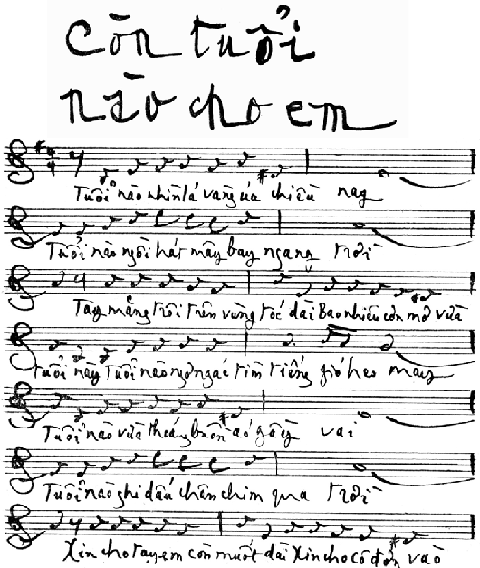 Còn tuổi
nào cho em
Tuổi nào nhìn lá vàng úa chiều nay
Tuổi nào ngồi hát mây bay ngang trời
Tay măng trôi trên vùng tóc dài Bao nhiêu cơn mơ vừa
tuổi này Tuổi nào ngơ ngác tìm tiếng gió heo may
Tuổi nào vừa thoáng buồn áo gầy vai
Tuổi nào ghi dấu chân chim qua trời
Xin cho tay em còn muốt dài Xin cho cô đơn vào